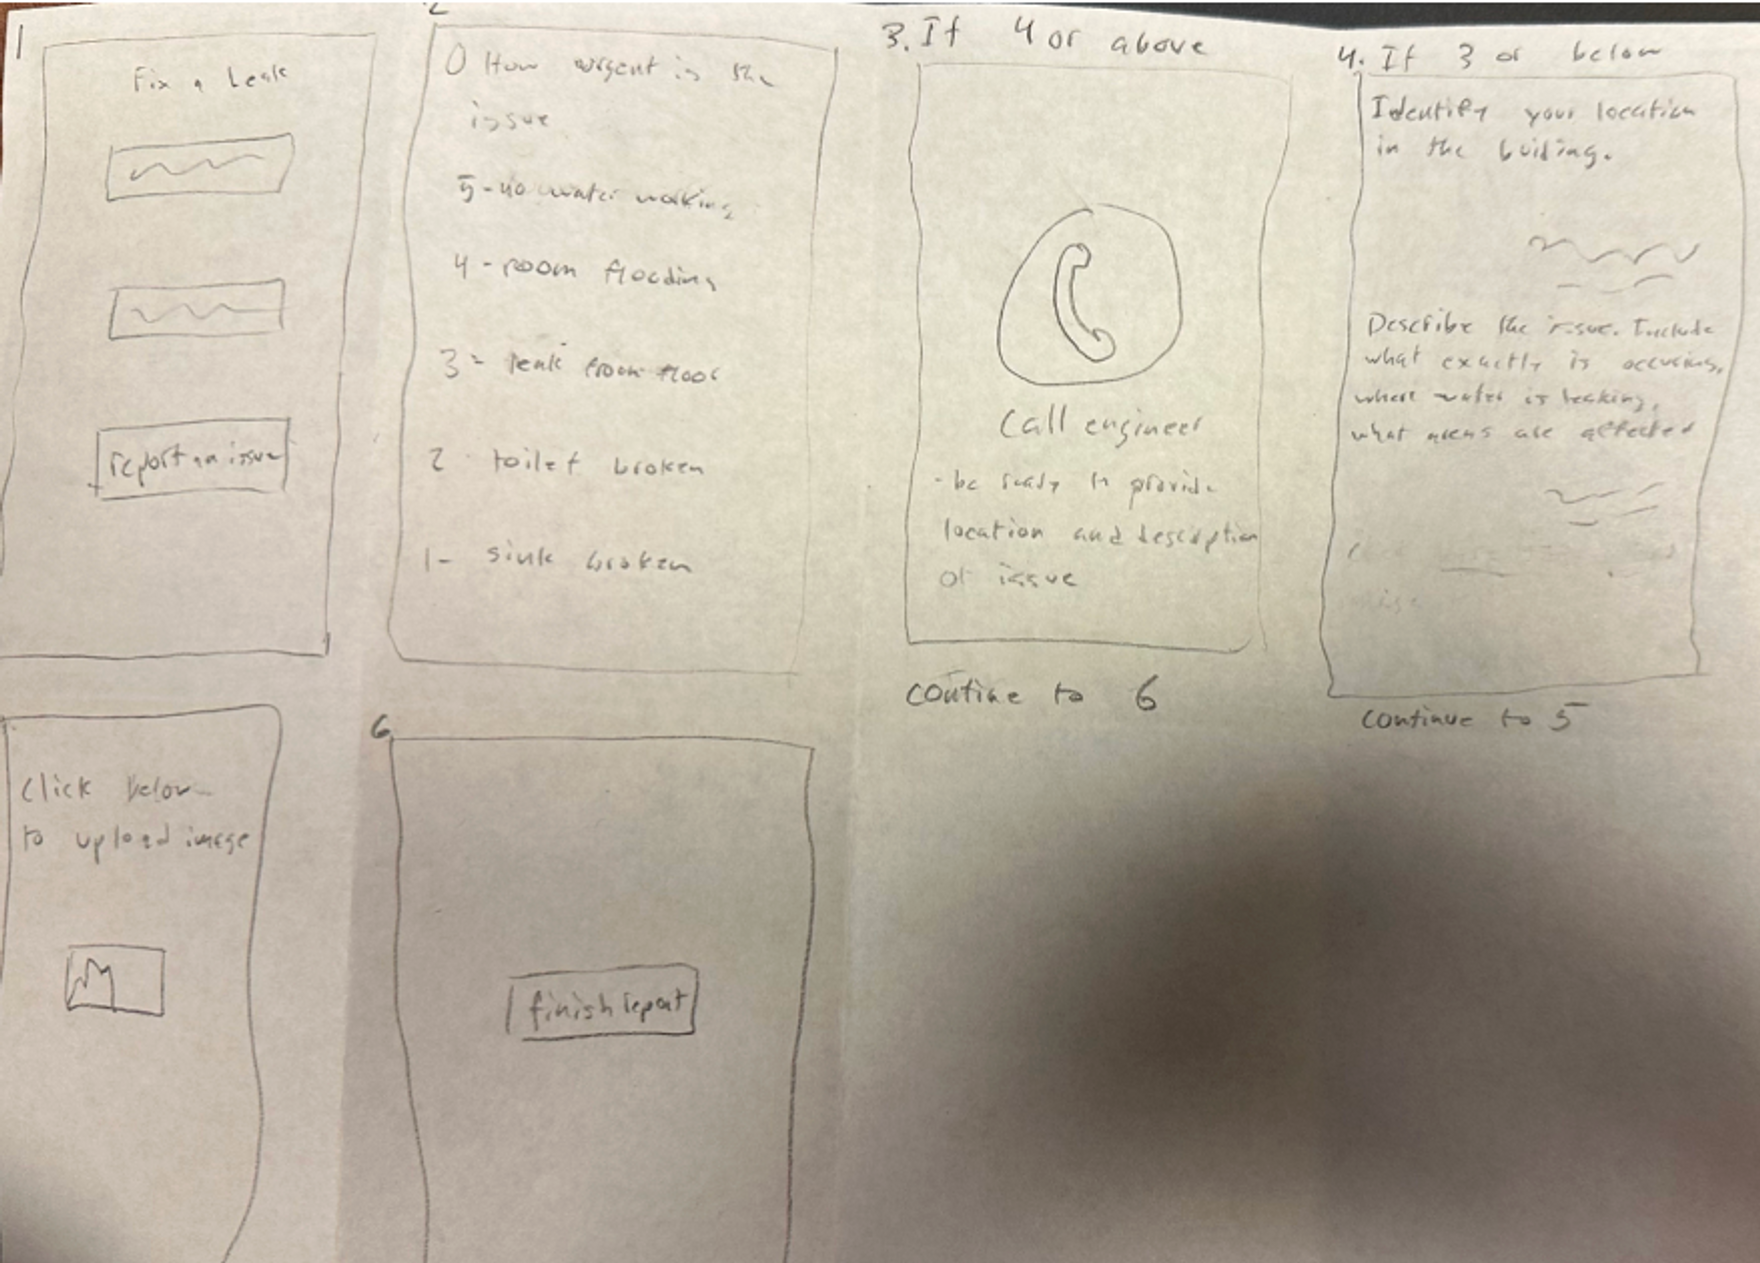 1
Fix a Leak
report an issue
2
0 How urgent is the
issue
5 - no water working
4 - room flooding
3 - leak from floor
2 - toilet broken
1 - sink broken
3. If 4 or above
Call engineer
- be ready to provide
location and description
of issue
contine to 6
4. If 3 or below
Identify your location
in the buiding.
Describe the issue. Include
what exactly is occuring,
where water is leaking,
what areas are affected
continue to 5
Click below
to upload image
6
finish report